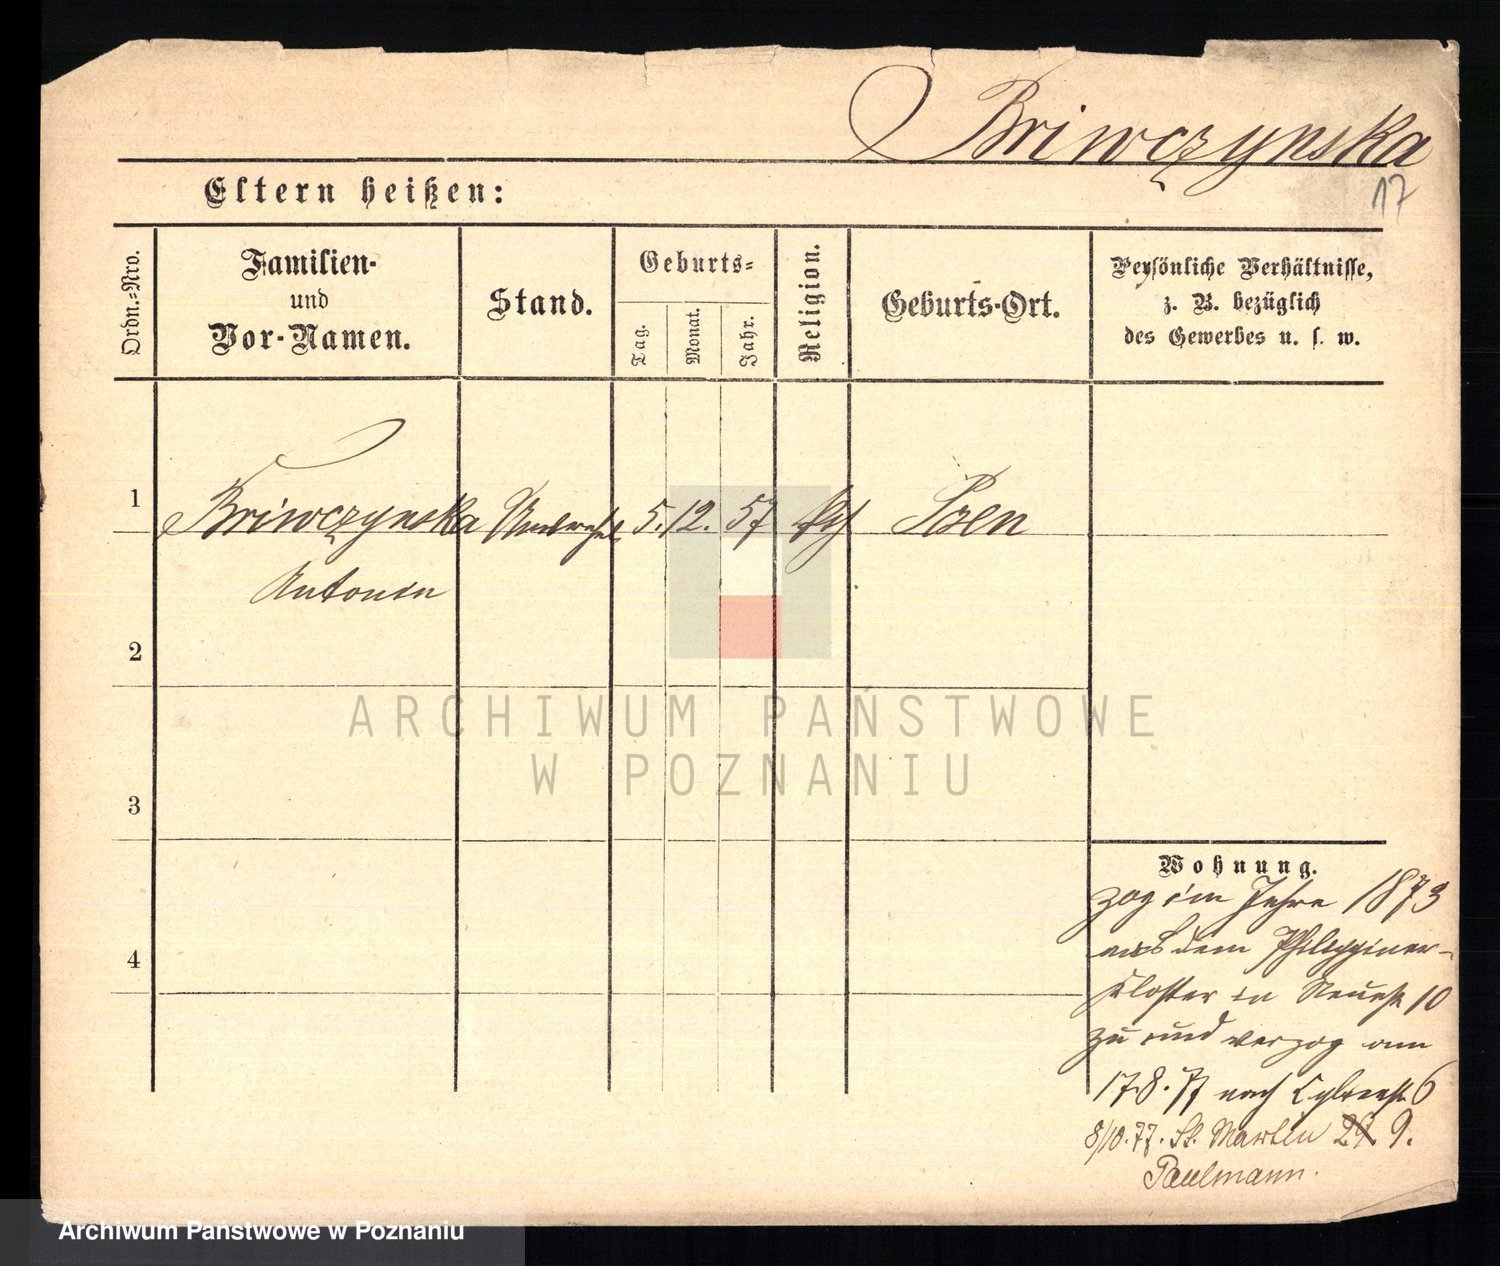 Briwczynska
17
Eltern heißen:
Ordn.-Nro.
Familien-
und
Vor-Namen.
Stand.
Geburts-
Tag.
Monat.
Jahr.
Religion.
Geburts-Ort.
Persönliche Verhältnisse,
z. B. bezüglich
des Gewerbes u. s. w.
1
Briwczynska
5. 12. 57
Posen
Antonin
2
3
4
Wohnung.
zog im Jahre 1873
aus dem Philippiner-
Kloster in 10
zu und verzog am
17.8.77 nach 6
8/10.77. St. Martin 9.
Paulmann.
ARCHIWUM PAŃSTWOWE
W POZNANIU
Archiwum Państwowe w Poznaniu